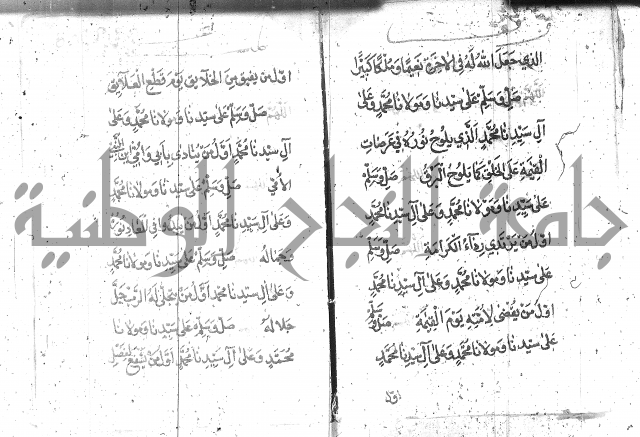 الذي جعل الله له في الاخرة نعيما وملكا كبيرا
اللهم صل وسلم على سيدنا ومولانا محمد وعلى
آل سيدنا محمد الذي يلوح نوره في عرصات
القيمة على الخلق كما يلوح البرق اللهم صل وسلم
على سيدنا ومولانا محمد وعلى آل سيدنا محمد
اول من يرتدي رداء الكرامة اللهم صل وسلم
على سيدنا ومولانا محمد وعلى آل سيدنا محمد
اول من يقضى لامته يوم القيمة صل وسلم
على سيدنا ومولانا محمد وعلى آل سيدنا محمد
اول
اول من يفيق من الخلايق يوم قطع العلايق
اللهم صل وسلم على سيدنا ومولانا محمد وعلى
آل سيدنا محمد اول من ينادى يا
الأمي صل وسلم على سيدنا ومولانا محمد
وعلى آل سيدنا محمد اول من
وجماله صل وسلم على سيدنا ومولانا محمد
وعلى آل سيدنا محمد اول من يتجلى له الرب جل
جلاله صل وسلم على سيدنا ومولانا
محمد وعلى آل سيدنا محمد اول من يشفع
جامعة النجاح الوطنية